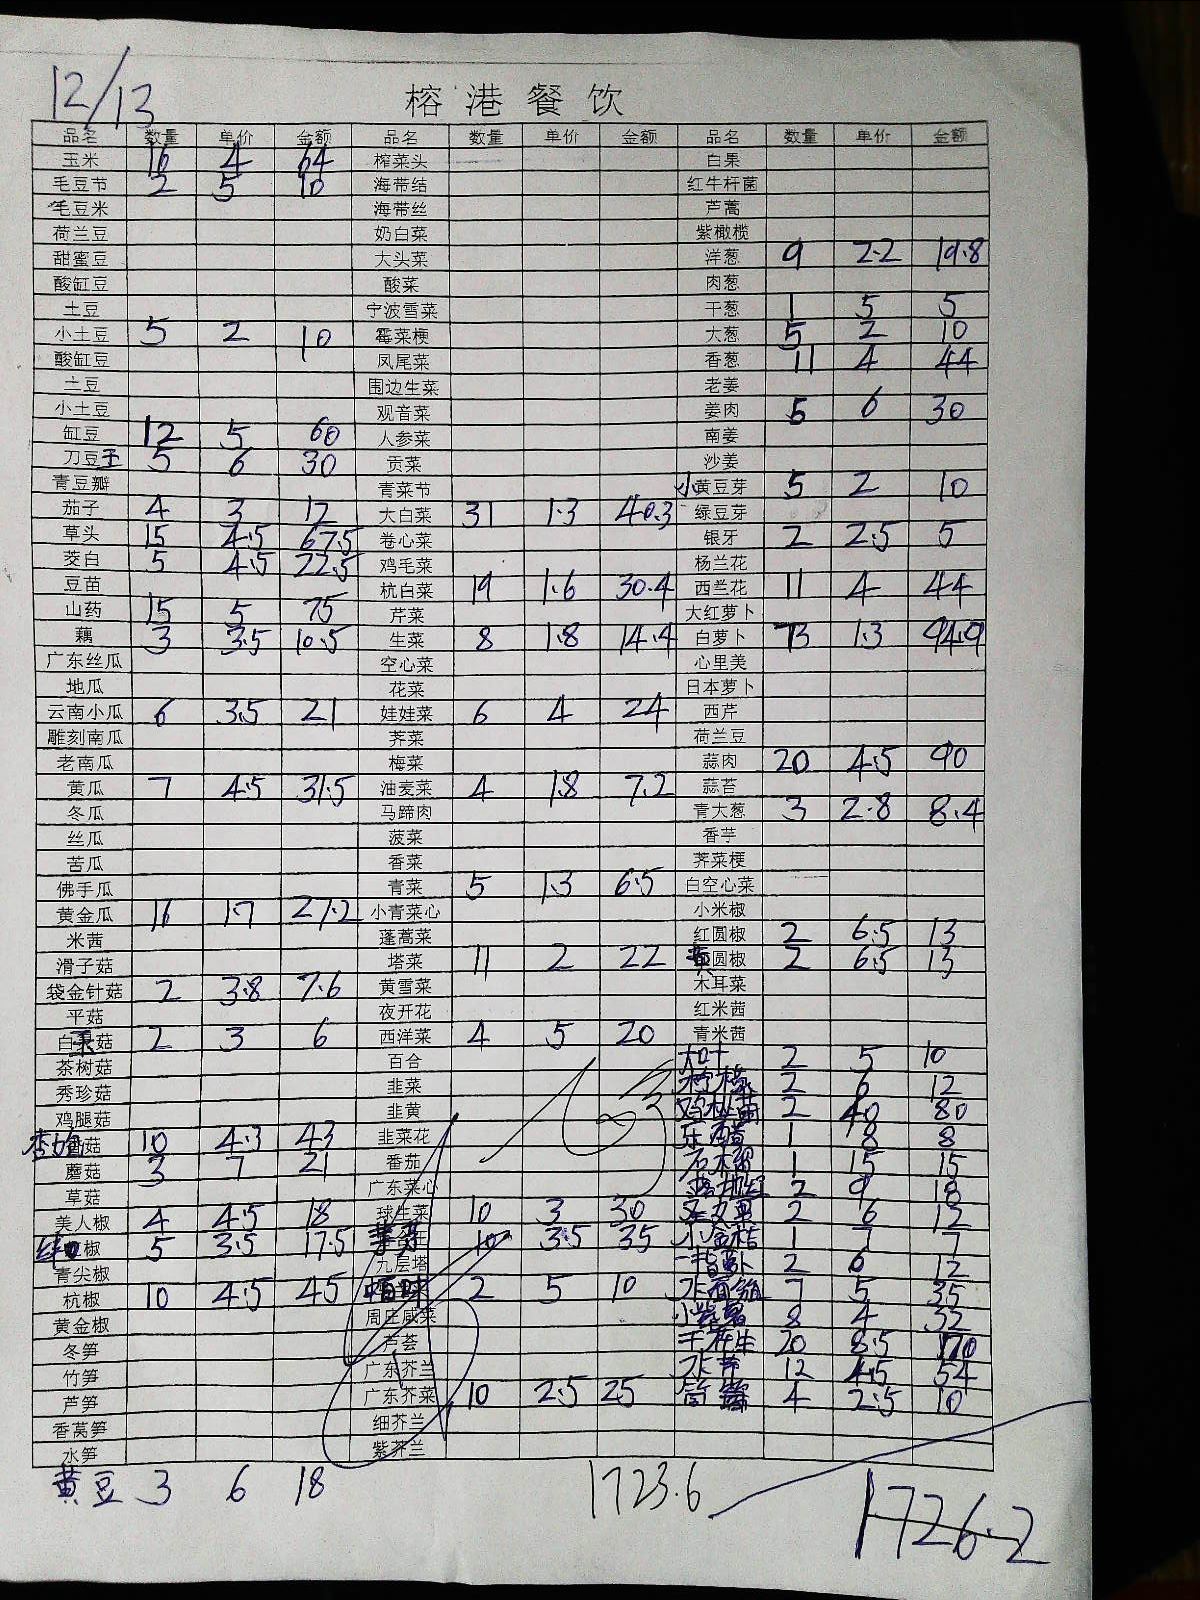 12/13
榕港餐饮
品名 数量 单价 金额 品名 数量 单价 金额 品名 数量 单价 金额
玉米 16 4 64 榨菜头 白果
毛豆节 2 5 10 海带结 红牛杆菌
毛豆米 海带丝 芦蒿
荷兰豆 奶白菜 紫橄榄
甜蜜豆 大头菜 洋葱 9 2.2 19.8
酸缸豆 酸菜 肉葱
土豆 宁波雪菜 干葱 1 5 5
小土豆 5 2 10 霉菜梗 大葱 5 2 10
酸缸豆 凤尾菜 香葱 11 4 44
土豆 围边生菜 老姜
小土豆 观音菜 姜肉 5 6 30
缸豆 12 5 60 人参菜 南姜
刀豆王 5 6 30 贡菜 沙姜
青豆瓣 青菜节 小黄豆芽 5 2 10
茄子 4 3 12 大白菜 31 1.3 40.3 绿豆芽
草头 15 4.5 67.5 卷心菜 银牙 2 2.5 5
茭白 5 4.5 22.5 鸡毛菜 杨兰花
豆苗 杭白菜 19 1.6 30.4 西兰花 11 4 44
山药 15 5 75 芹菜 大红萝卜
藕 3 3.5 10.5 生菜 8 1.8 14.4 白萝卜 73 1.3 94.9
广东丝瓜 空心菜 心里美
地瓜 花菜 日本萝卜
云南小瓜 6 3.5 21 娃娃菜 6 4 24 西芹
雕刻南瓜 荠菜 荷兰豆
老南瓜 梅菜 蒜肉 20 4.5 90
黄瓜 7 4.5 31.5 油麦菜 4 1.8 7.2 蒜苔
冬瓜 马蹄肉 青大葱 3 2.8 8.4
丝瓜 菠菜 香芋
苦瓜 香菜 荠菜梗
佛手瓜 青菜 5 1.3 6.5 白空心菜
黄金瓜 16 1.7 27.2 小青菜心 小米椒
米茜 蓬蒿菜 红圆椒 2 6.5 13
滑子菇 塔菜 11 2 22 黄圆椒 2 6.5 13
袋金针菇 2 3.8 7.6 黄雪菜 木耳菜
平菇 夜开花 红米茜
白玉菇 2 3 6 西洋菜 4 5 20 青米茜
茶树菇 百合 大叶 2 5 10
秀珍菇 韭菜 柠檬 2 6 12
鸡腿菇 韭黄 2 40 80
菇 10 4.3 43 韭菜花 1 8 8
蘑菇 3 7 21 番茄 1 15 15
草菇 广东菜心 2 9 18
美人椒 4 4.5 18 球生菜 10 3 30 2 6 12
椒 5 3.5 17.5 10 3.5 35 小金桔 1 7 7
青尖椒 九层塔 2 6 12
杭椒 10 4.5 45 2 5 10 水面筋 7 5 35
黄金椒 周庄咸菜 小紫薯 8 4 32
冬笋 芦荟 20 8.5 170
竹笋 广东芥兰 水芹 12 4.5 54
芦笋 广东芥菜 10 2.5 25 4 2.5 10
香莴笋 细芥兰
水笋 紫芥兰
黄豆 3 6 18 1723.6
1726.2